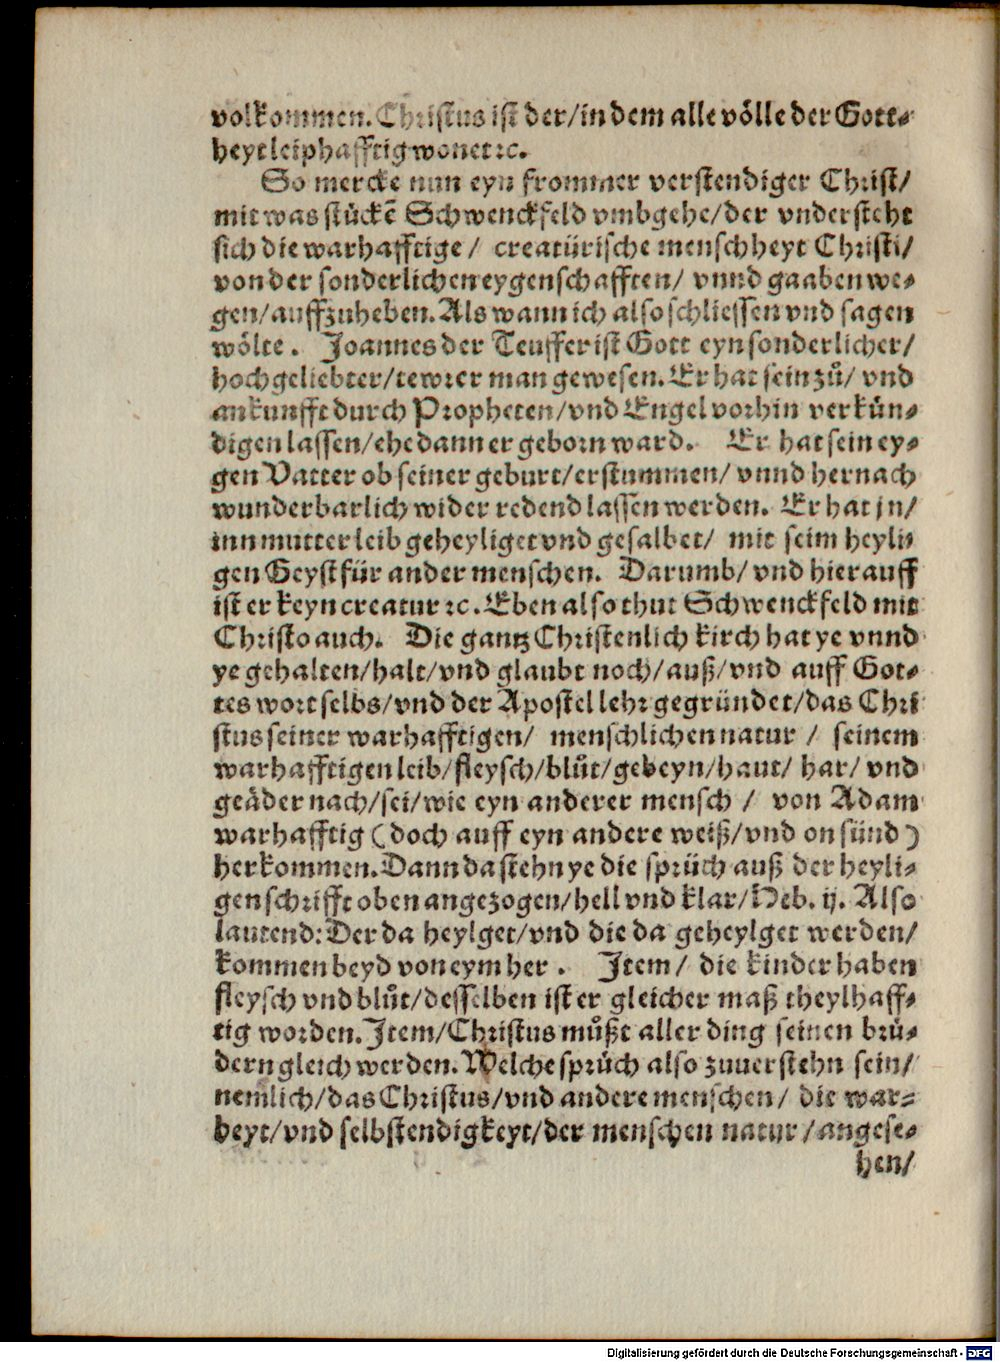 volkommen. Christus ist der/in dem alle võlle der Gott⸗
heyt leiphafftig wonet ꝛc.
So mercke nun eyn frommer verstendiger Christ/
mit was stückẽ Schwenckfeld vmbgehe/der vndersteht
sich die warhafftige/ creatürische menschheyt Christi/
von der sonderlichen eygenschafften/ vnnd gaaben we⸗
gen/auffzuheben. Als wann ich also schliessen vnd sagen
wölte. Joannes der Teuffer ist Gott eyn sonderlicher/
hochgeliebter/tewrer man gewesen. Er hat sein zů/ vnd
ankunfft durch Propheten/vnd Engel vorhin verkün⸗
digen lassen/ehe dann er geborn ward. Er hat sein ey⸗
gen Vatter ob seiner geburt/erstummen/ vnnd hernach
wunderbarlich wider redend lassen werden. Er hat jn/
inn mutter leib geheyliget vnd gesalbet/ mit seim heyli⸗
gen Geyst für ander menschen. Darumb/ vnd hierauff
ist er keyn creatur ꝛc. Eben also thut Schwenckfeld mit
Christo auch. Die gantz Christenlich kirch hat ye vnnd
ye gehalten/halt/vnd glaubt noch/auß/vnd auff Got⸗
tes wort selbs/vnd der Apostel lehr gegründet/das Chri
stus seiner warhafftigen/ menschlichen natur / seinem
warhafftigen leib/fleysch/blůt/gebeyn/haut/ har/ vnd
geäder nach/sei/wie eyn anderer mensch / von Adam
warhafftig (doch auff eyn andere weiß/vnd on sünd)
herkommen. Dann da stehn ye die sprüch auß der heyli⸗
gen schrifft oben angezogen/hell vnd klar/Heb. ij. Also
lautend: Der da heylget/vnd die da geheylget werden/
kommen beyd von eym her. Item/ die kinder haben
fleysch vnd blůt/desselben ist er gleicher maß theylhaff⸗
tig worden. Item/Christus můßt aller ding seinen brů⸗
dern gleich werden. Welche sprüch also zuuerstehn sein/
nemlich/das Christus/vnd andere menschen/ die war⸗
heyt/vnd selbstendigkeyt/der menschen natur/angese⸗
hen/
Digitalisierung gefördert durch die Deutsche Forschungsgemeinschaft - DFG